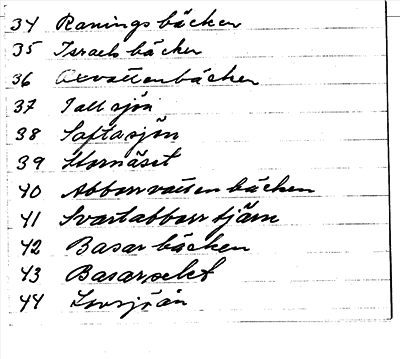 34 Raningsbäcken
35 Israelsbäcken
36 Oxvattenbäcken
37 Tallsjön
38 Saftasjön
39 Stornäset
40 Abborrvattenbäcken
41 Svartabborrtjärn
42 Basarbäcken
43 Basarselet
44